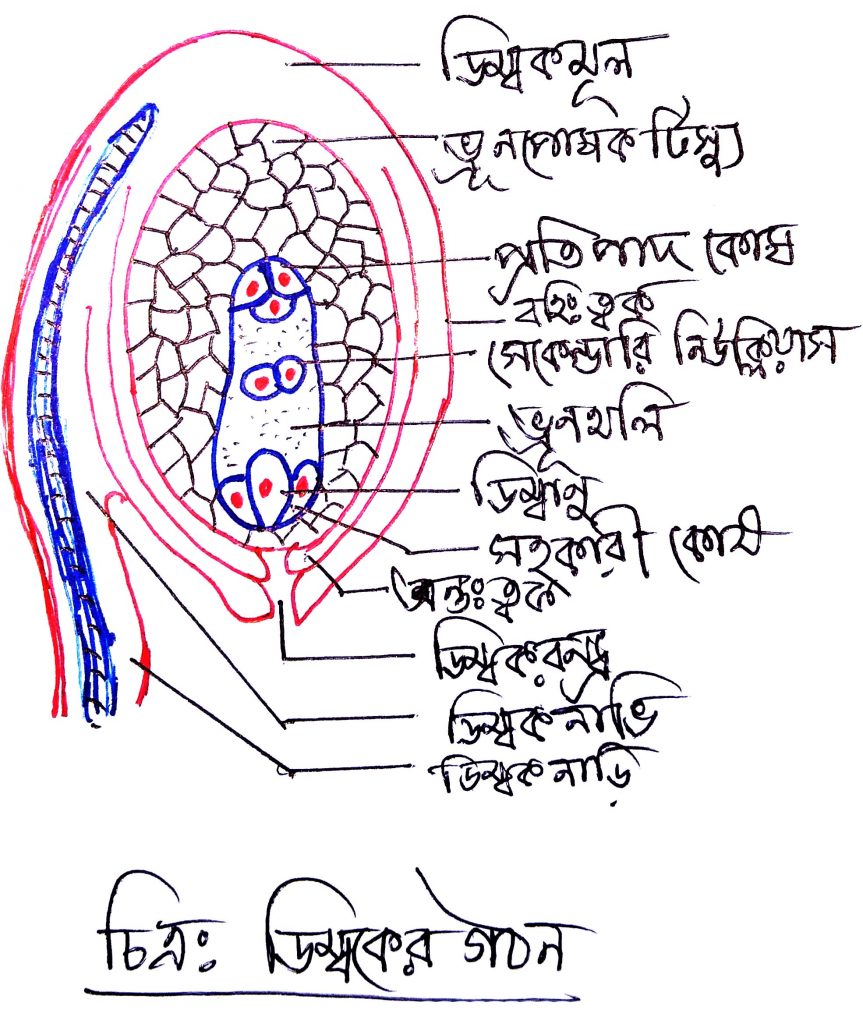 ডিম্বকমূল
ভ্রূনপোষক টিস্যু
প্রতিপাদ কোষ
বহিঃত্বক
সেকেন্ডারি নিউক্লিয়াস
ভ্রূনথলি
ডিম্বানু
সহকারী কোষ
অন্তঃত্বক
ডিম্বকরন্ধ্র
ডিম্বকনাভি
ডিম্বকনাড়ি
চিত্রঃ ডিম্বকের গঠন